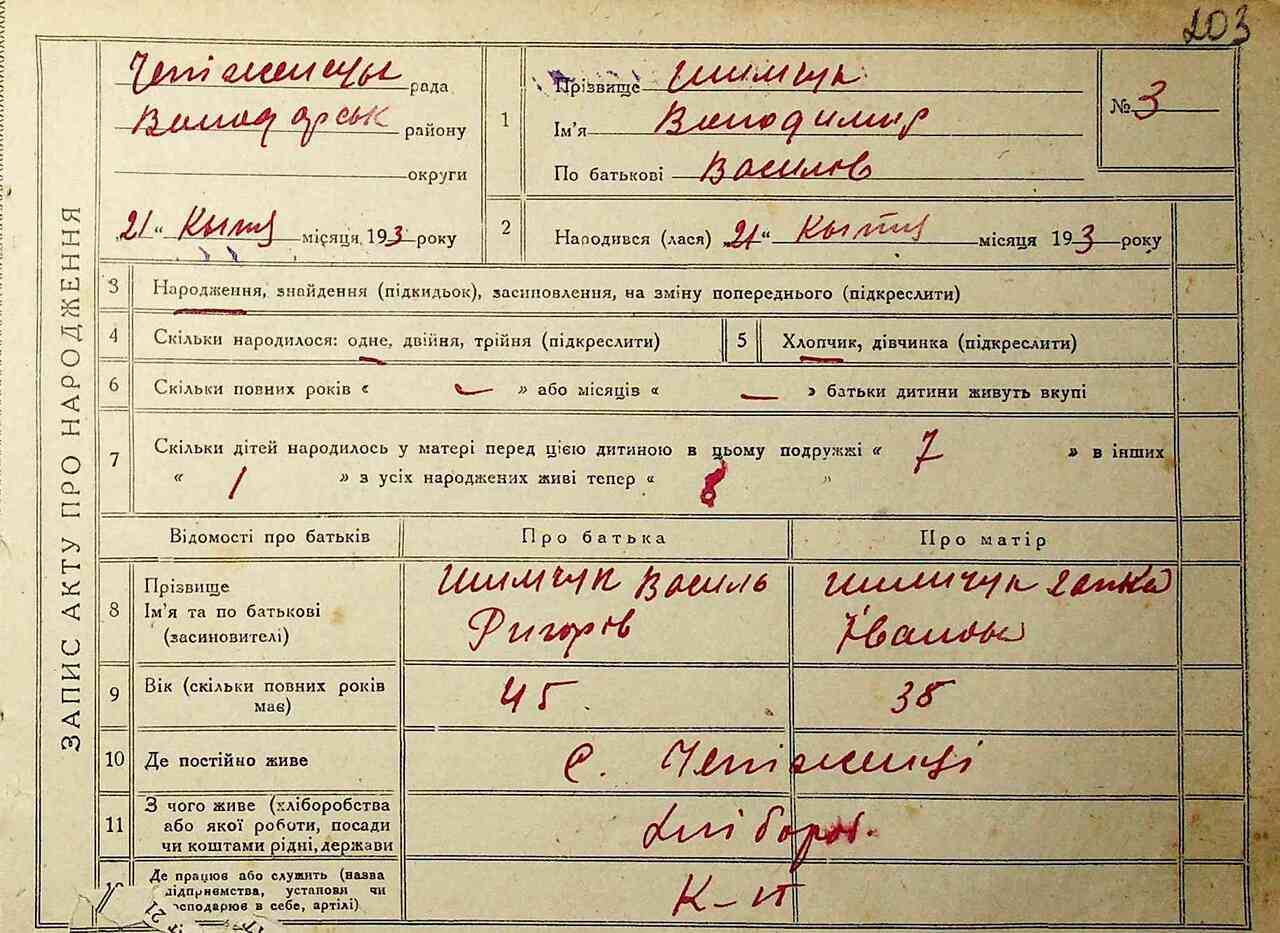 203
Чепіжинцы рада
Володарськ району
округи
„21" Кьітня місяця 193 року
ЗАПИС АКТУ ПРО НАРОДЖЕННЯ
1 Прізвище Шимчук
Ім'я Володимир
По батькові Василов
№ 3
2 Народився (лася) „21" Кьітня місяця 193 року
3 Народження, знайдення (підкидьок), засиновлення, на зміну попереднього (підкреслити)
4 Скільки народилося: одне, двійня, трійня (підкреслити)
5 Хлопчик, дівчинка (підкреслити)
6 Скільки повних років « — » або місяців « — » батьки дитини живуть вкупі
7 Скільки дітей народилось у матері перед цією дитиною в цьому подружжі « 7 » в інших
« 1 » з усіх народжених живі тепер « 8 »
Відомості про батьків Про батька Про матір
8 Прізвище
Ім'я та по батькові
(засиновителі)
Шимчук Василь
Ригорів
Шимчук Гапка
Івановы
9 Вік (скільки повних років
має)
45
38
10 Де постійно живе с. Чепіжинці
11 З чого живе (хліборобства
або якої роботи, посади
чи коштами рідні, держави
Хлібороб.
Де працює або служить (назва
підприємства, установи чи
господарює в себе, артілі)
К-п
21